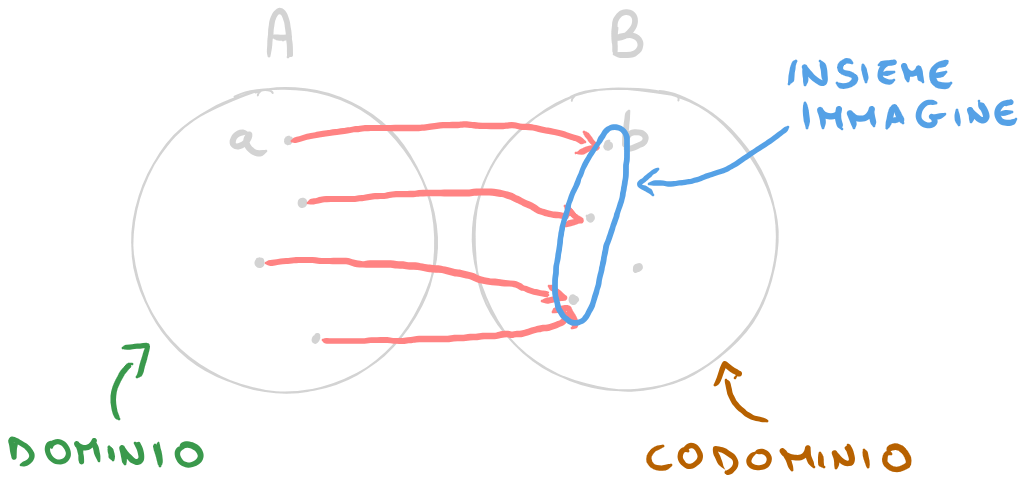 A
B
INSIEME
IMMAGINE
a
b
DOMINIO
CODOMINIO